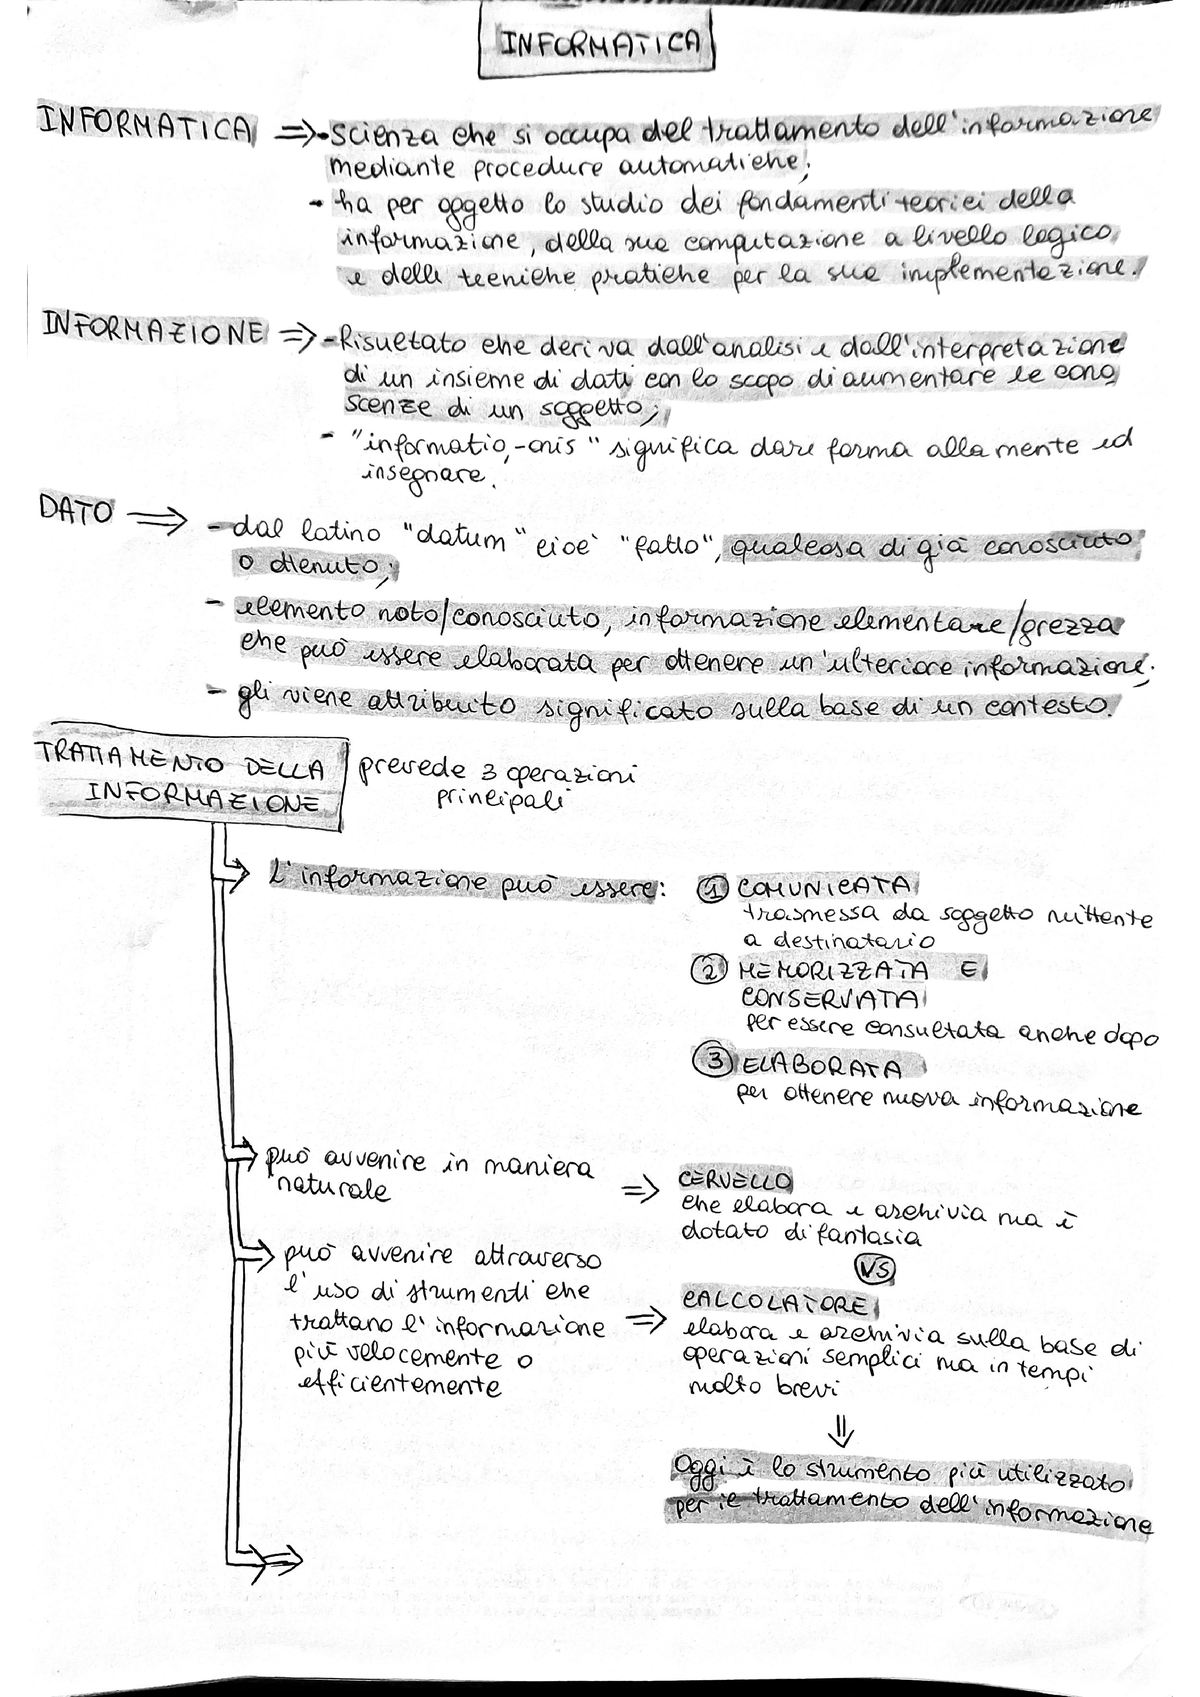 INFORMATICA
INFORMATICA ⇒ - Scienza che si occupa del trattamento dell'informazione
mediante procedure automatiche;
- ha per oggetto lo studio dei fondamenti teorici della
informazione, della sua computazione a livello logico
e delle tecniche pratiche per la sua implementazione.
INFORMAZIONE ⇒ - Risultato che deriva dall'analisi e dall'interpretazione
di un insieme di dati con lo scopo di aumentare le cono
scenze di un soggetto;
- "informatio,-onis" significa dare forma alla mente ed
insegnare.
DATO ⇒ - dal latino "datum" cioè "fatto", qualcosa di già conosciuto
o ottenuto;
- elemento noto/conosciuto, informazione elementare/grezza
che può essere elaborata per ottenere un'ulteriore informazione;
- gli viene attribuito significato sulla base di un contesto.
TRATTAMENTO DELLA
INFORMAZIONE
prevede 3 operazioni
principali
L'informazione può essere:
① COMUNICATA
trasmessa da soggetto mittente
a destinatario
② MEMORIZZATA E
CONSERVATA
per essere consultata anche dopo
③ ELABORATA
per ottenere nuova informazione
può avvenire in maniera
naturale
⇒ CERVELLO
che elabora e archivia ma è
dotato di fantasia
VS
può avvenire attraverso
l'uso di strumenti che
trattano l'informazione
più velocemente o
efficientemente
⇒ CALCOLATORE
elabora e archivia sulla base di
operazioni semplici ma in tempi
molto brevi
⇓
Oggi è lo strumento più utilizzato
per il trattamento dell'informazione